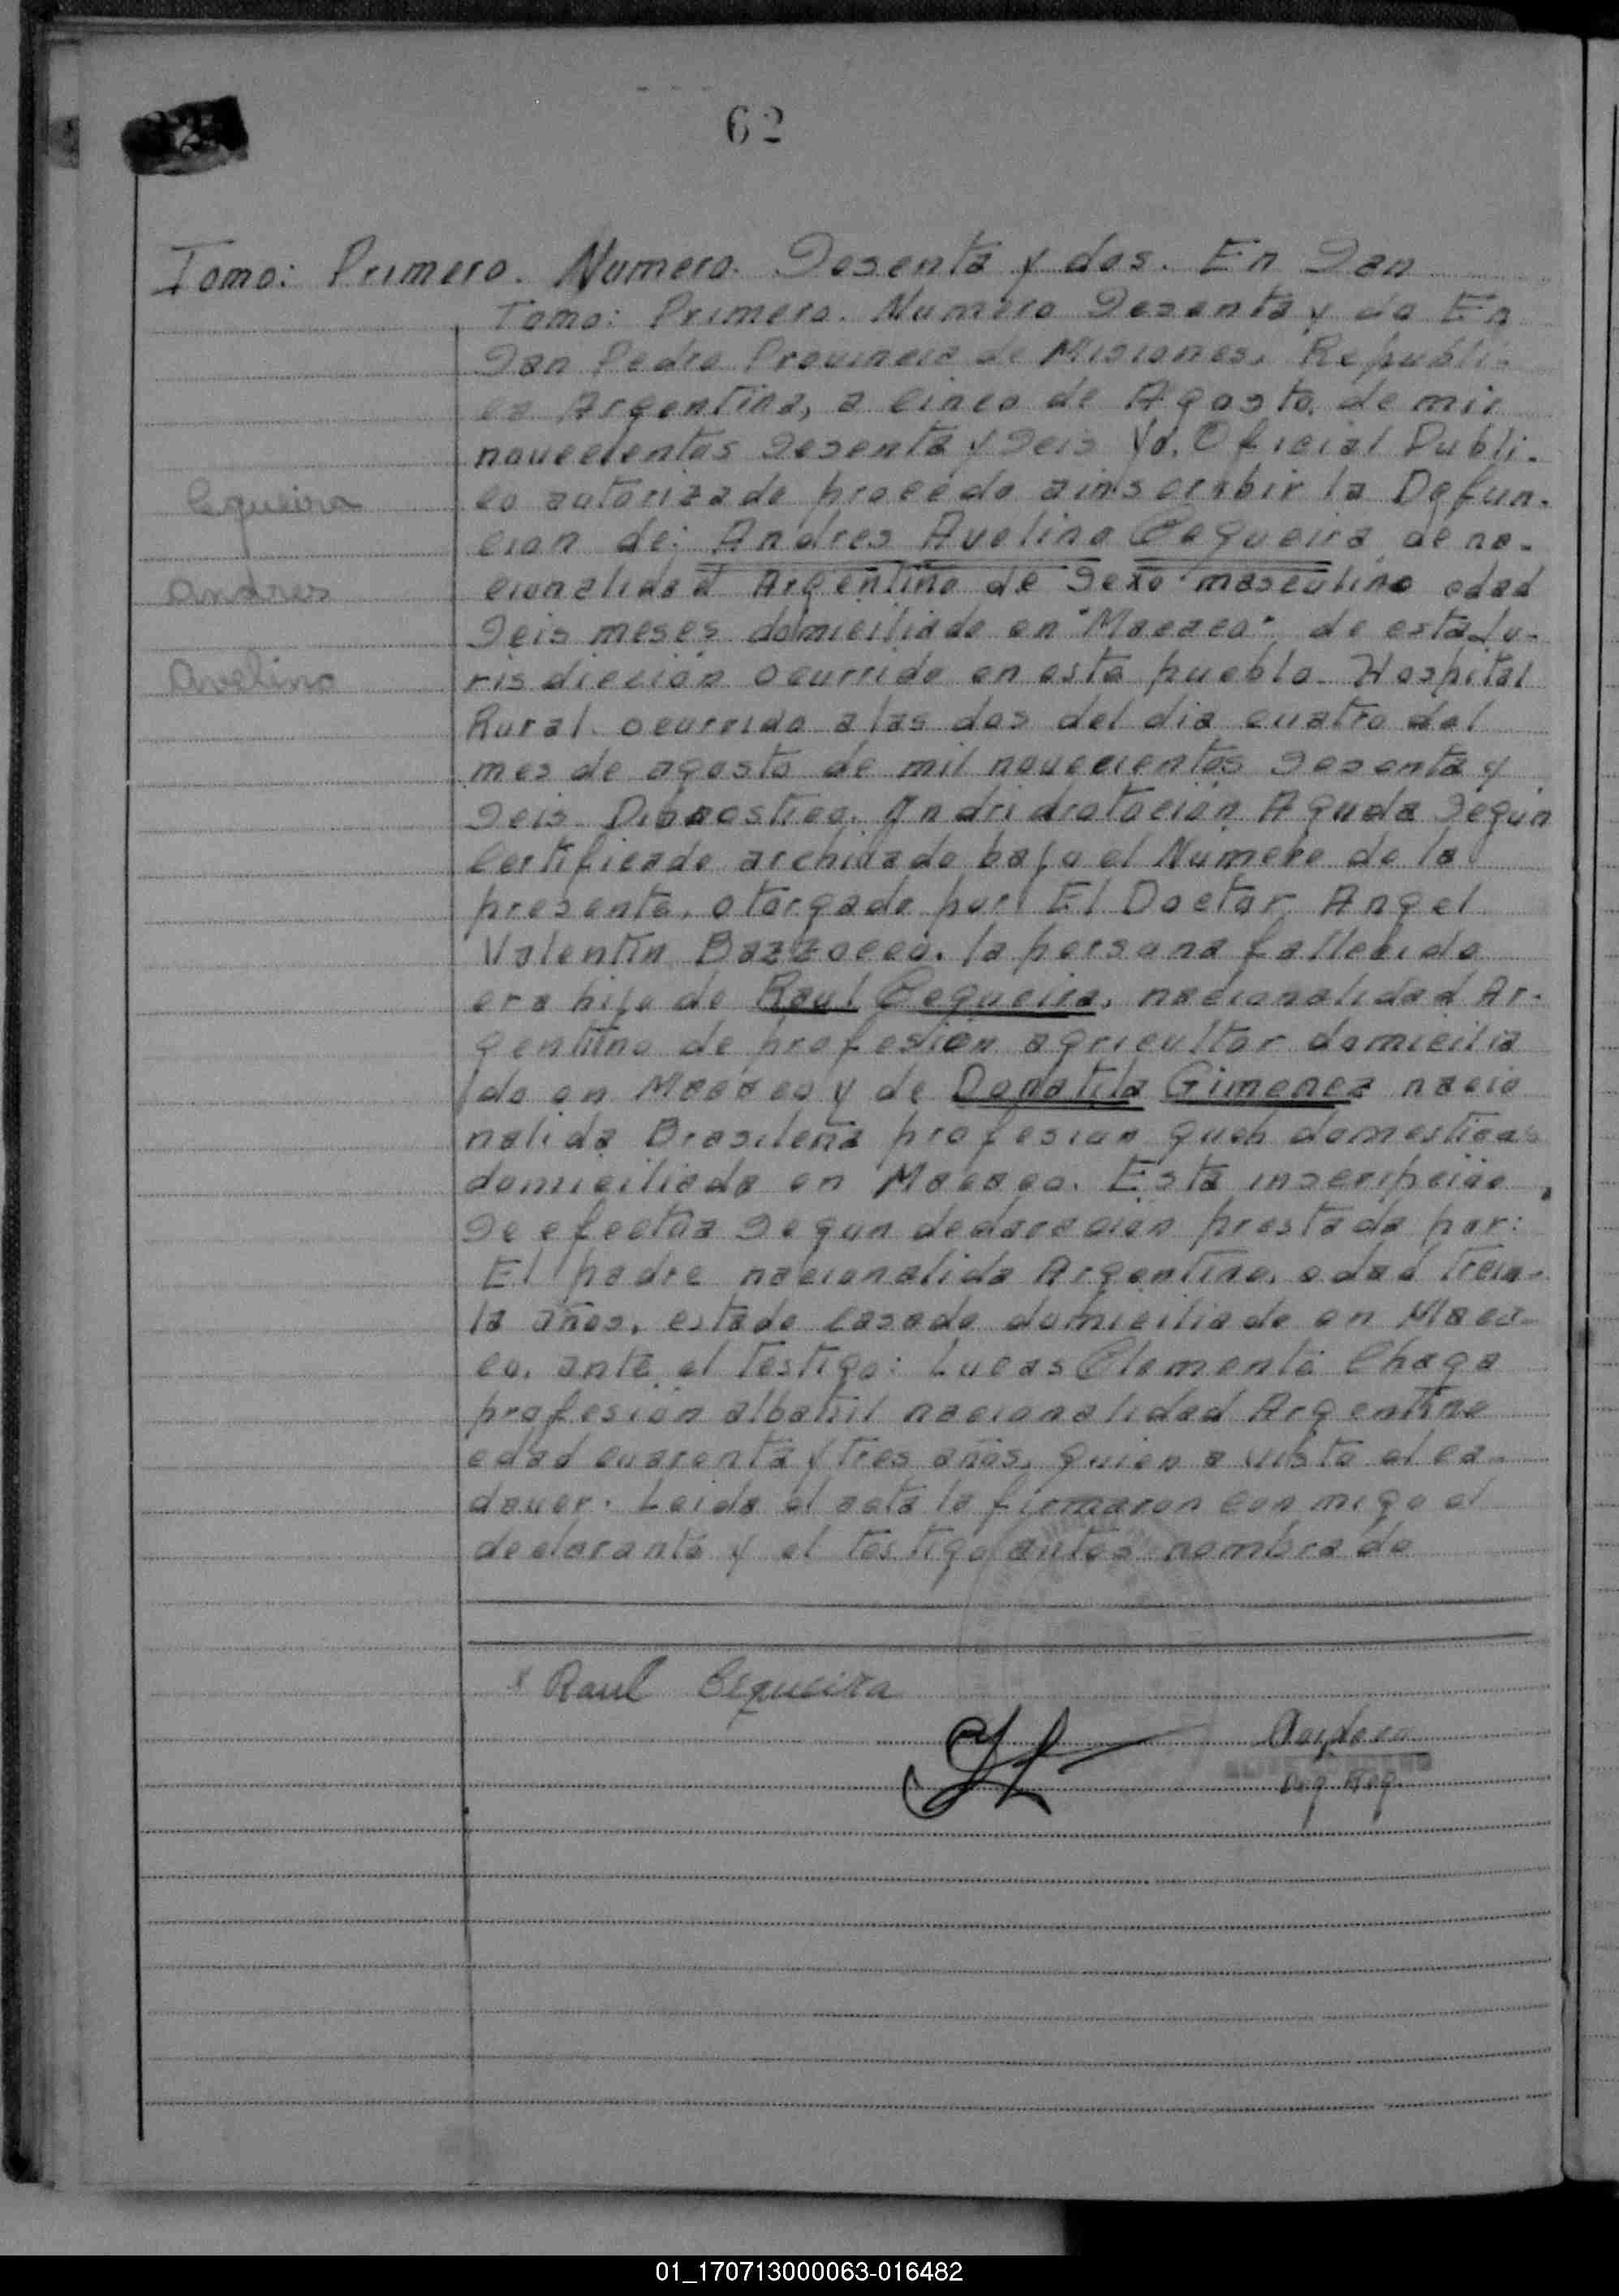 62
Tomo: Primero. Numero. Sesenta y dos. En San
Tomo: Primero. Numero Sesenta y do En
San Pedro Provincia de Misiones, Republi-
ca Argentina, a cinco de Agosto, de mil
novecientos Sesenta y Seis Yo. Oficial Publi-
co autorizado procedo a inscribir la Defun-
cion de: Andres Avelino Cequeira de na-
cionalidad Argentino de Sexo masculino edad
Seis meses domiciliado en "Macaco" de esta Ju-
risdiccion ocurrido en esta pueblo Hospital
Rural ocurrido a las dos del dia cuatro del
mes de agosto de mil novecientos Sesenta y
Seis Dignostico. Indridratacion Aguda Segun
Certificado archivado bajo el Numero de la
presente, otorgado por El Doctor Angel
Valentin Bazzocco. la persona fallecido
era hijo de Raul Cequeira, nacionalidad Ar-
gentino de profesion agricultor domicilia
do en Macaco y de Donatila Gimenez nacio
nalida Brasileña profesion queh domesticas
domiciliada en Macaco. Esta inscripcion
Se efectua Segun declaracion prestada por:
El padre nacionalida Argentino, edad trein-
ta años, estado casado domiciliado en Maca-
co, ante el testigo: Lucas Clemente Chaga
profesion albañil nacionalidad Argentino
edad cuarenta y tres años, quien a visto el ca-
daver. Leida el acta la firmaron con migo el
declarante y el testigo antes nombrado
Cequeira
Andres
Avelino
x Raul Cequeira
01_170713000063-016482